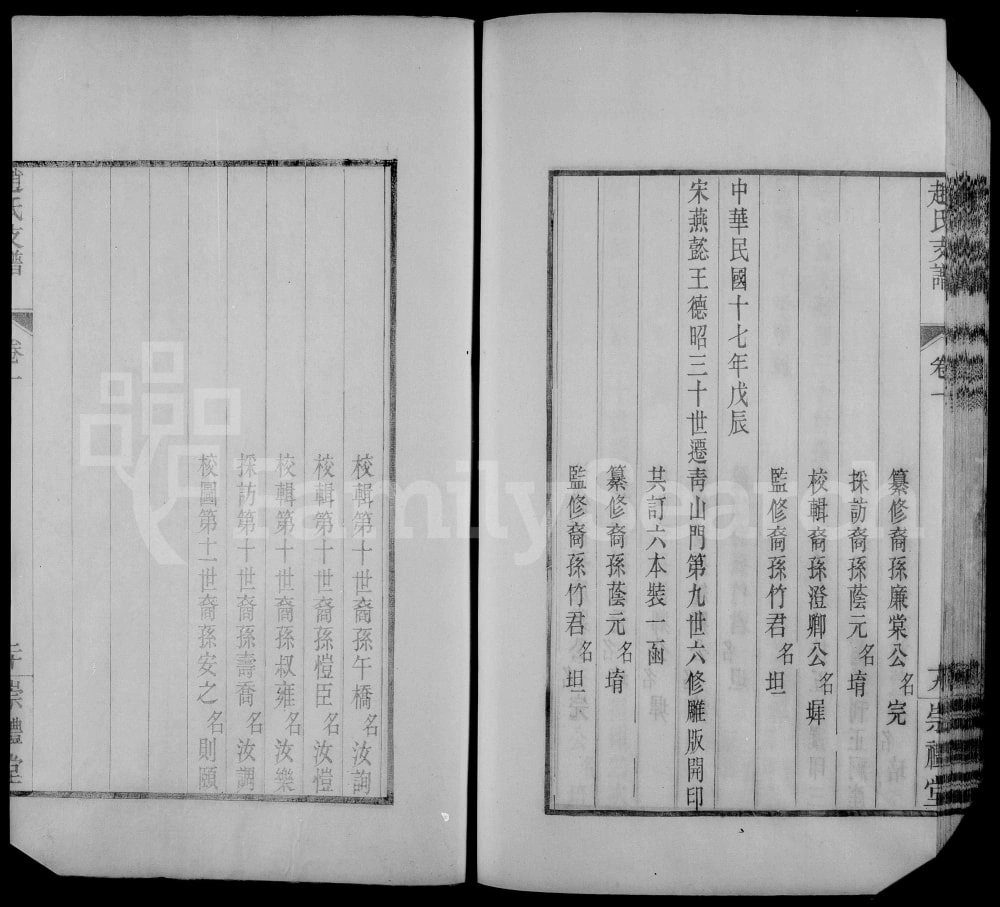 趙氏支譜
卷一
崇禮堂
纂修裔孫廉棠公名完
採訪裔孫蔭元名堉
校輯裔孫澄卿公名墀
監修裔孫竹君名坦
中華民國十七年戊辰
宋燕懿王德昭三十世遷靑山門第九世六修雕版開印
共訂六本裝一函
纂修裔孫蔭元名堉
監修裔孫竹君名坦
校輯第十世裔孫午橋名汝詢
校輯第十世裔孫愷臣名汝愷
校輯第十世裔孫叔雍名汝樂
採訪第十世裔孫壽喬名汝調
校圖第十一世裔孫安之名則頤
趙氏支譜
卷一
崇禮堂
FamilySearch